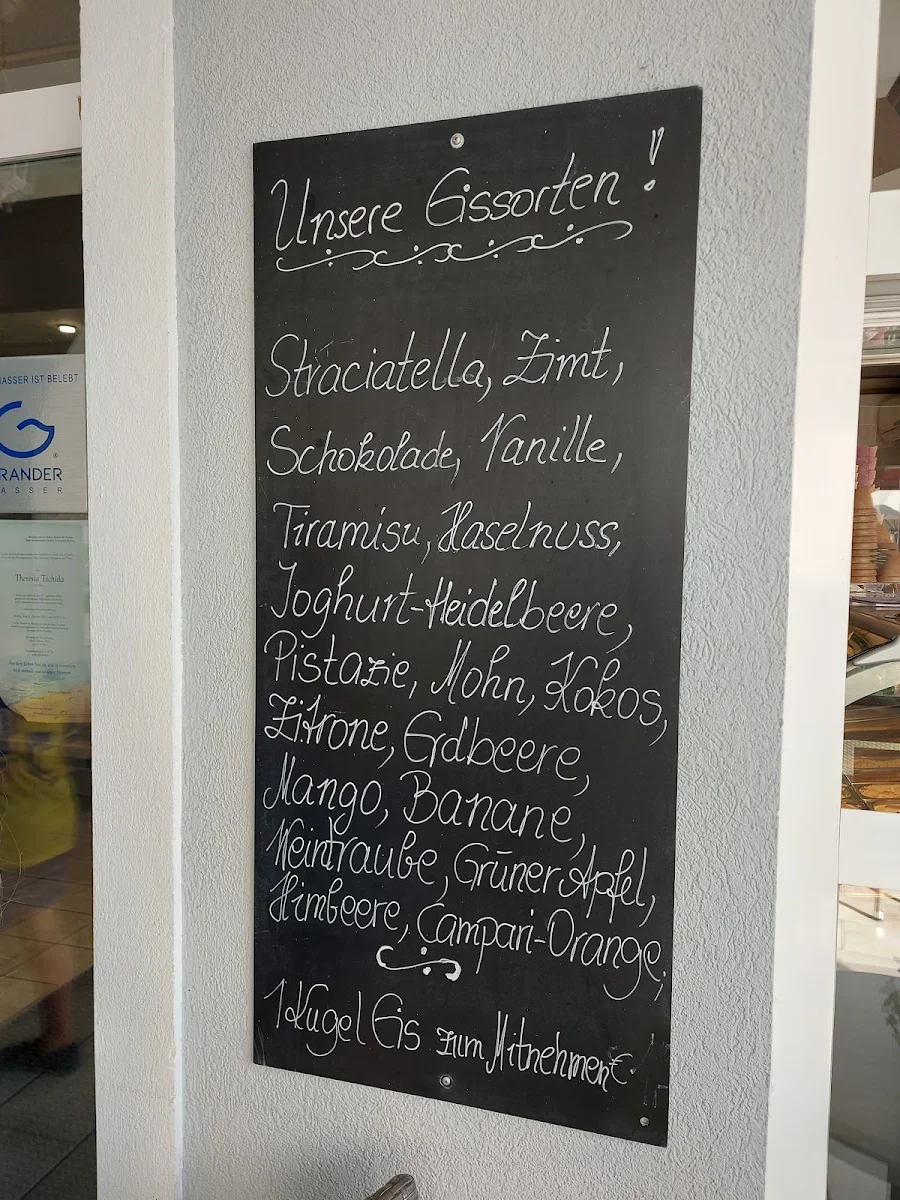 Unsere Eissorten !
Straciatella, Zimt,
Schokolade, Vanille,
Tiramisu, Haselnuss,
Joghurt-Heidelbeere,
Pistazie, Mohn, Kokos,
Zitrone, Erdbeere,
Mango, Banane,
Weintraube, Grüner Apfel,
Himbeere, Campari-Orange,
1 Kugel Eis zum Mitnehmen €
WASSER IST BELEBT
G
RANDER
ASSER
Theresia